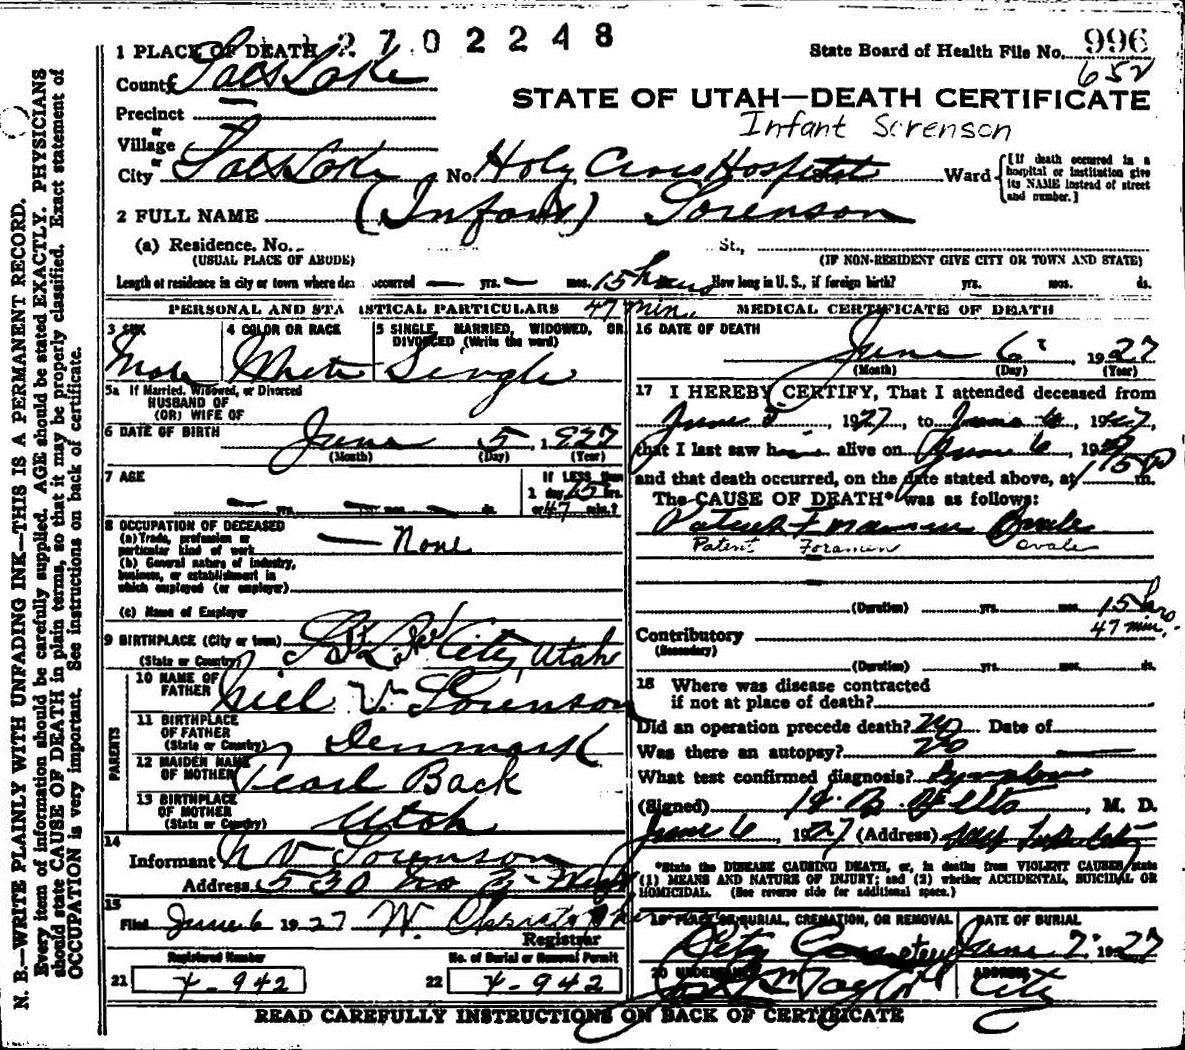 2702248
1 PLACE OF DEATH
State Board of Health File No. 996
652
County Salt Lake
STATE OF UTAH—DEATH CERTIFICATE
Precinct
Infant Sorenson
or
Village
or
City Salt Lake No. Holy Cross Hospital St. Ward
[If death occurred in a hospital or institution give its NAME instead of street and number.]
2 FULL NAME (Infant) Sorenson
(a) Residence. No. St.,
(USUAL PLACE OF ABODE) (IF NON-RESIDENT GIVE CITY OR TOWN AND STATE)
Length of residence in city or town where death occurred — yrs. — mos. 15 hours How long in U. S., if foreign birth? yrs. mos. ds.
47 min.
PERSONAL AND STATISTICAL PARTICULARS
3 SEX
Male
4 COLOR OR RACE
White
5 SINGLE, MARRIED, WIDOWED, OR DIVORCED (Write the word)
Single
5a If Married, Widowed, or Divorced
HUSBAND OF
(OR) WIFE OF
6 DATE OF BIRTH June 5, 1927
(Month) (Day) (Year)
7 AGE
— yrs. — mos. — ds.
If LESS than
1 day 15 hrs.
or 47 min.?
8 OCCUPATION OF DECEASED
(a) Trade, profession or particular kind of work — None
(b) General nature of industry, business, or establishment in which employed (or employer)
(c) Name of Employer
9 BIRTHPLACE (City or town) Salt Lake City, Utah
(State or Country)
PARENTS
10 NAME OF FATHER V. Sorenson
11 BIRTHPLACE OF FATHER
(State or Country) Denmark
12 MAIDEN NAME OF MOTHER Pearl Back
13 BIRTHPLACE OF MOTHER
(State or Country) Utah
14
Informant N V Sorenson
Address 530 No
15
Filed June 6 1927 W.
Registrar
Registered Number
21 4-942
No. of Burial or Removal Permit
22 4-942
MEDICAL CERTIFICATE OF DEATH
16 DATE OF DEATH
June 6, 1927
(Month) (Day) (Year)
17 I HEREBY CERTIFY, That I attended deceased from
June 5, 1927 to June 6, 1927,
that I last saw him alive on June 6, 1927
and that death occurred, on the date stated above, at 1 15 P m.
The CAUSE OF DEATH* was as follows:
Patent Foramen Ovale
Patent Foramen Ovale
(Duration) yrs. mos. 15 hrs
47 min.
Contributory
(Secondary)
(Duration) yrs. mos. ds.
18 Where was disease contracted
if not at place of death?
Did an operation precede death? No Date of
Was there an autopsy? No
What test confirmed diagnosis? Symptoms
(Signed) M. D.
June 6, 1927 (Address)
*State the DISEASE CAUSING DEATH, or, in deaths from VIOLENT CAUSES, state
(1) MEANS AND NATURE OF INJURY; and (2) whether ACCIDENTAL, SUICIDAL OR
HOMICIDAL. (See reverse side for additional space.)
19 PLACE OF BURIAL, CREMATION, OR REMOVAL
City Cemetery
DATE OF BURIAL
June 7 1927
20 UNDERTAKER
Taylor
ADDRESS
City
READ CAREFULLY INSTRUCTIONS ON BACK OF CERTIFICATE
N. B.—WRITE PLAINLY WITH UNFADING INK—THIS IS A PERMANENT RECORD.
Every item of information should be carefully supplied. AGE should be stated EXACTLY. PHYSICIANS
should state CAUSE OF DEATH in plain terms, so that it may be properly classified. Exact statement of
OCCUPATION is very important. See instructions on back of certificate.